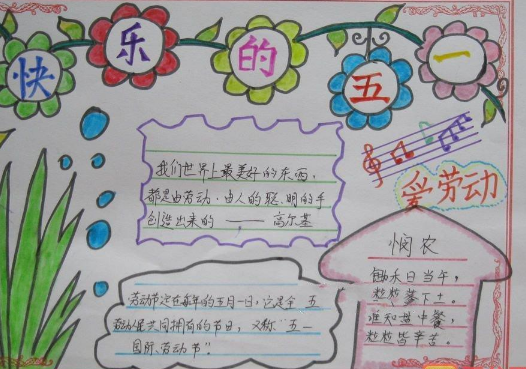 快乐的五一
我们世界上最美好的东西,
都是由劳动、由人的聪明的手
创造出来的 —— 高尔基
爱劳动
悯农
锄禾日当午,
粒粒
下土。
谁知盘中餐,
粒粒皆辛苦。
劳动节定在每年的五月一日,它是全
五
劳动
共同拥有的节日,又称“五一
国际劳动节”!